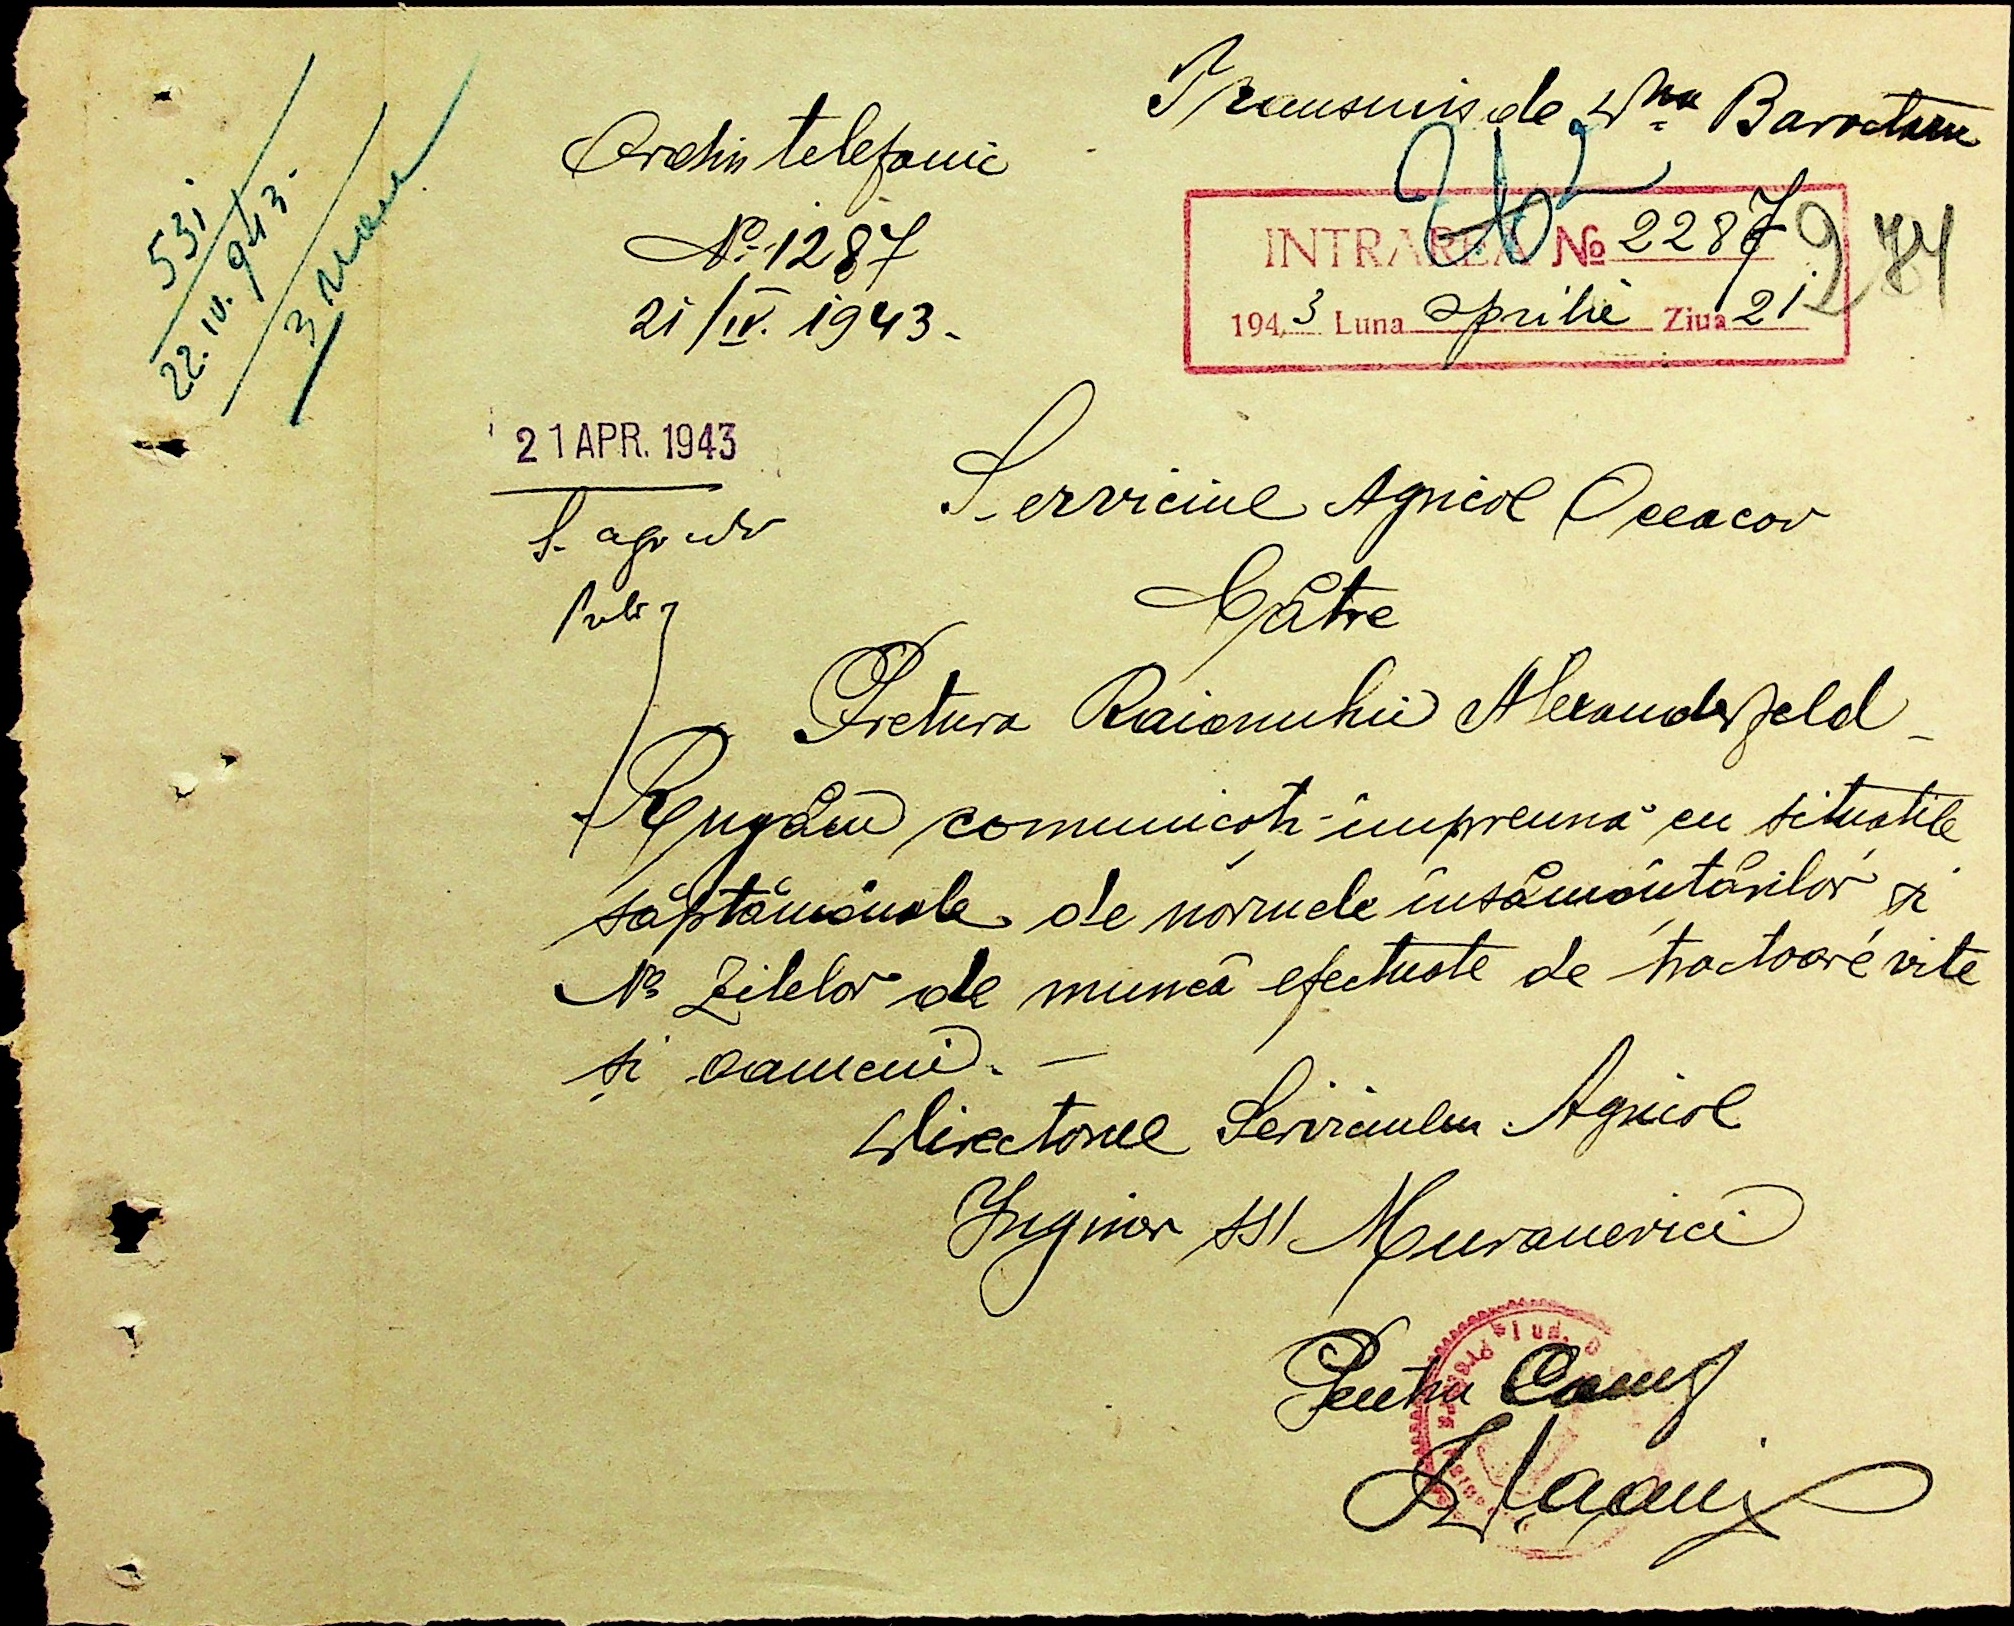 Transmis de Dna
Ordin telefonic
No. 1287
21/IV. 1943.
531
22.IV.943.
INTRAREA No 2287
1943 Luna aprilie Ziua 21
284
21 APR. 1943
S. agricol
Serviciul Agricol Oceacov
Către
Pretura Raionului Alexanderfeld
Rugăm comunicați împreună cu situatile
săptămânale de normele însămânțărilor și
No Zilelor de muncă efectuate de tractoare vite
și oameni. —
Directorul Serviciului Agricol
Inginer ss/ Muranevici
Pentru Conf